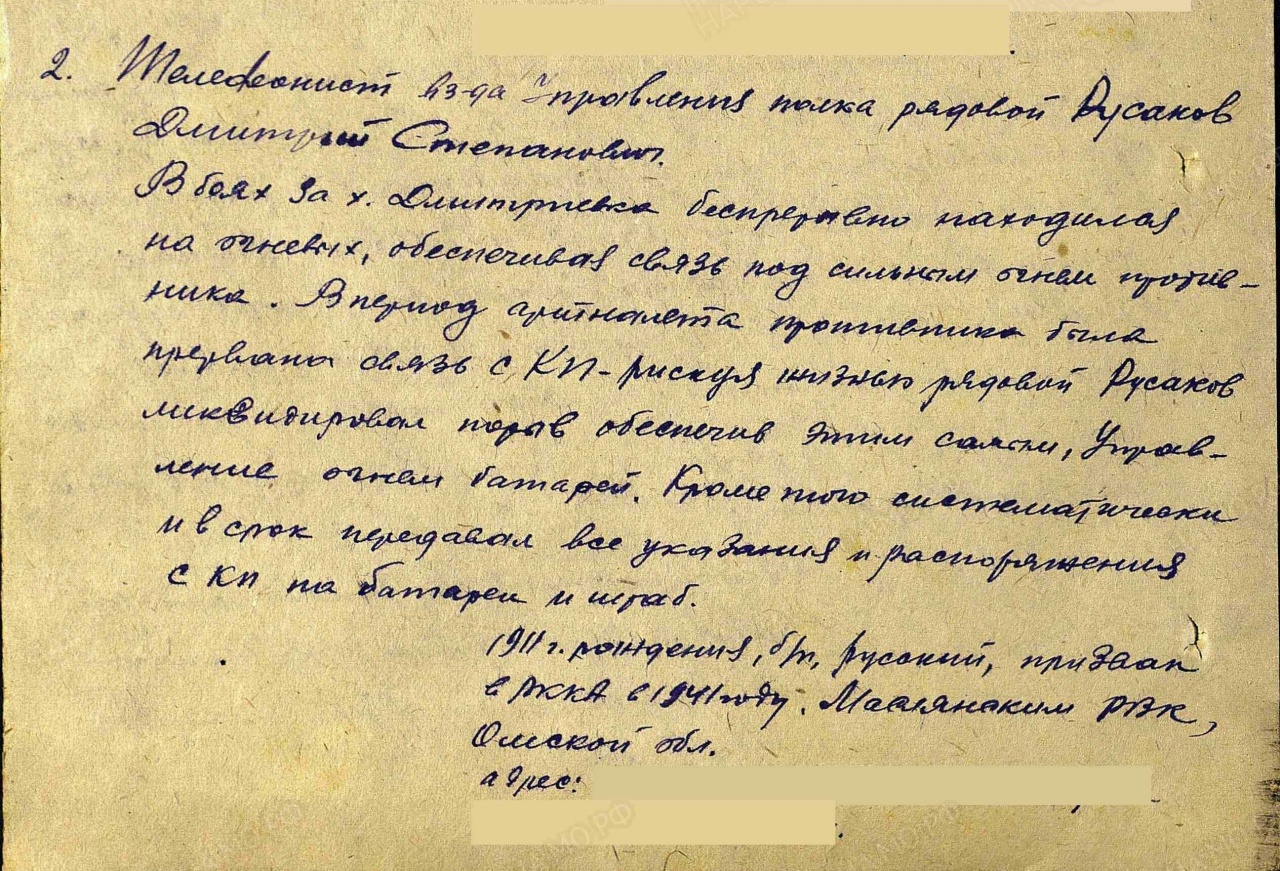 2. Телефонист вз-да Управления полка рядовой Русаков
Дмитрий Степанович.
В боях за х. Дмитриевка беспрерывно находился
на огневых, обеспечивая связь под сильным огнем против-
ника. В период артналета противника была
прервана связь с КП - рискуя жизнью рядовой Русаков
ликвидировал порыв обеспечив этим самым, Управ-
ление огнем батарей. Кроме того систематически
и в срок передавал все указания и распоряжения
с КП на батареи и штаб.
1911 г. рождения, б/п, русский, призван
в РККА в 1941 году. Маслянским РВК,
Омской обл.
адрес: